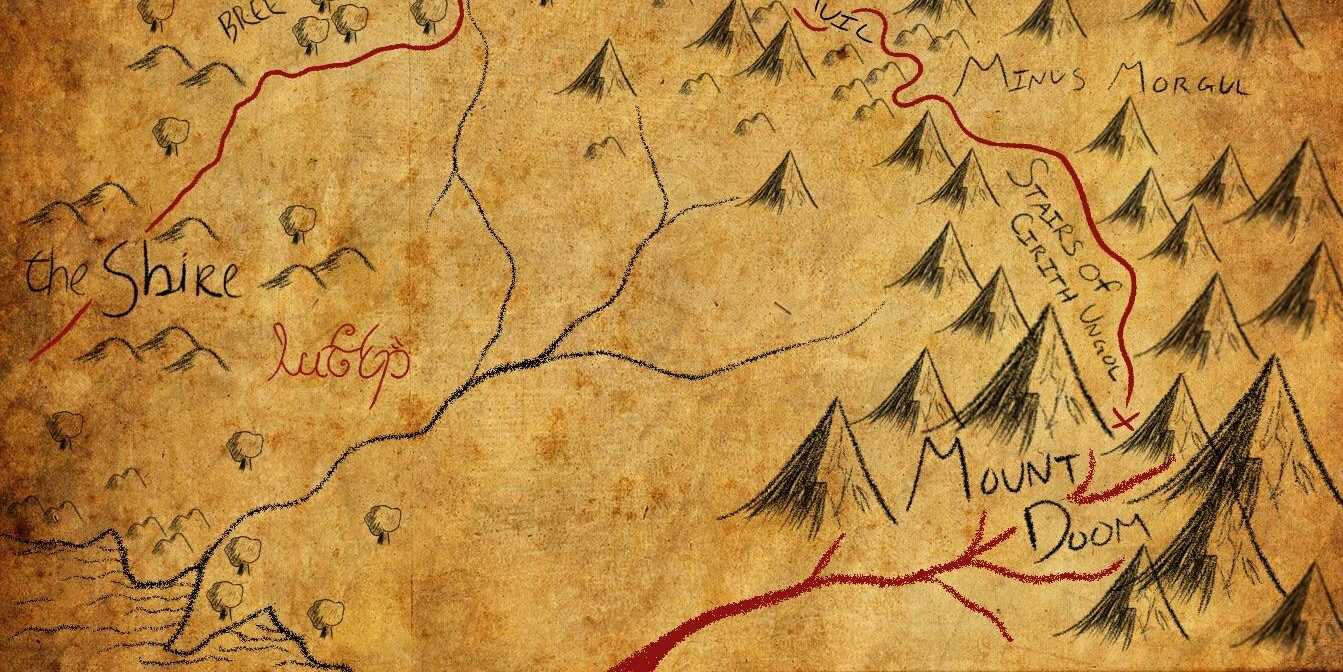 BREE
MINUS MORGUL
STAIRS OF
CIRITH UNGOL
the Shire
MOUNT
DOOM